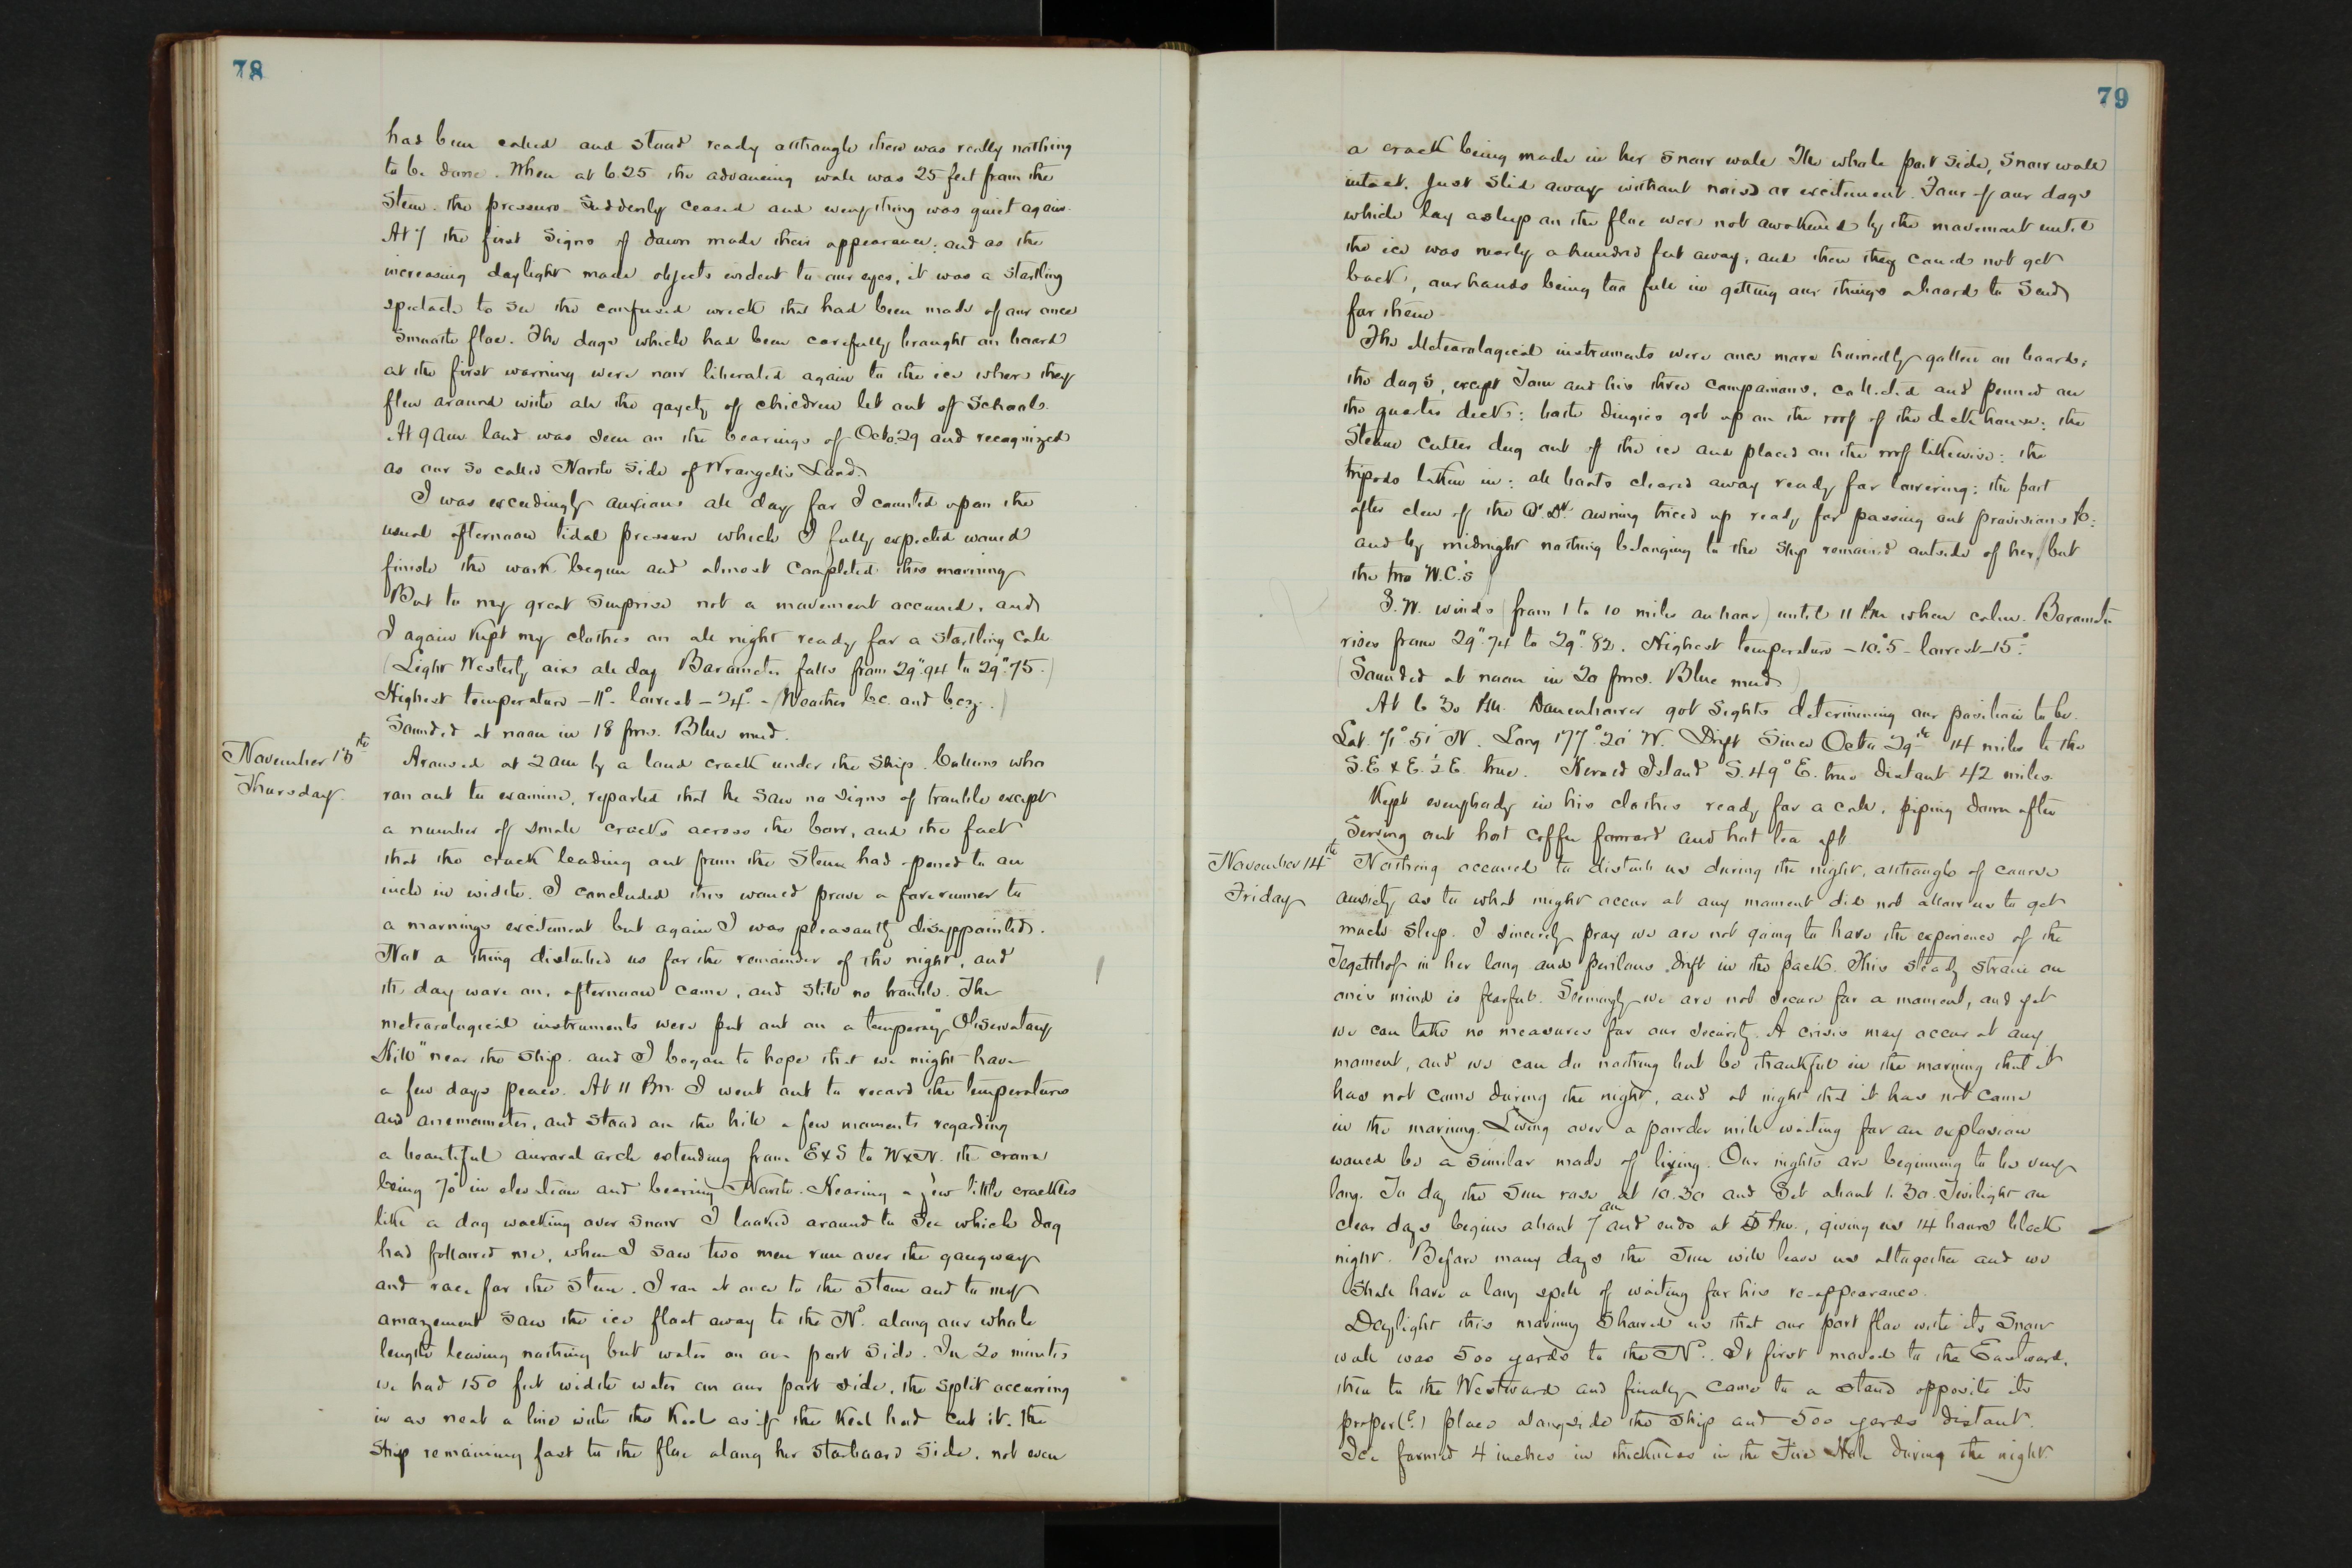 78
had been called and stood ready although there was really nothing
to be done. When at 6.25 the advancing wall was 25 feet from the
Stem. the pressure Suddenly ceased and everything was quiet again.
At 7 the first Signs of dawn made their appearance: and as the
increasing daylight made objects evident to our eyes, it was a startling
spectacle to see the confused wreck that had been made of our once
Smooth floe. The dogs which had been carefully brought on board
at the first warning were now liberated again to the ice where they
flew around with all the gayety of children let out of School.
At 9 am land was seen on the bearings of Octo. 29 and recognized
as our So called North Side of Wrangell's Land.
I was exceedingly anxious all day for I counted upon the
usual afternoon tidal pressure which I fully expected would
finish the work begun and almost completed this morning
But to my great Surprise not a movement occurred, and
I again Kept my clothes on all night ready for a startling call
(Light Westerly airs all day Barometer falls from 29".94 to 29".75.)
Highest temperature -11°- lowest -24°- (Weather b.c. and b.c.z.)
Sounded at noon in 18 fms. Blue mud.
November 13th
Thursday.
Aroused at 2 am by a loud crack under the Ship. Collins who
ran out to examine, reported that he saw no signs of trouble except
a number of small cracks across the bow, and the fact
that the crack leading out from the Stem had opened to an
inch in width. I concluded this would prove a forerunner to
a mornings excitement but again I was pleasantly disappointed.
Not a thing disturbed us for the remainder of the night, and
the day wore on, afternoon came, and still no trouble. The
meteorological instruments were put out on a temporary "Observatory
Hill" near the Ship. and I began to hope that we might have
a few days peace. At 11 Pm. I went out to record the temperatures
and anemometer, and stood on the hill a few moments regarding
a beautiful auroral arch extending from ExS to WxN. the crown
being 70° in elevation and bearing North. Hearing a few little crackles
like a dog walking over snow I looked around to see which dog
had followed me, when I saw two men run over the gangway
and race for the Stem. I ran at once to the Stem and to my
amazement saw the ice float away to the Nd. along our whole
length leaving nothing but water on our port side. In 20 minutes
we had 150 feet width water on our port side, the split occurring
in as neat a line with the Keel as if the Keel had cut it. The
Ship remaining fast to the floe along her starboard side, not even
79
a crack being made in her snow wall. The whole port side, snow wall
intact. Just slid away without noise or excitement. Four of our dogs
which lay asleep on the floe were not awakened by the movement until
the ice was nearly a hundred feet away, and then they could not get
back, our hands being too full in getting our things aboard to send
for them.
The Meteorological instruments were once more hurriedly gotten on board;
the dogs, except Tom and his three companions, collected and penned on
the quarter deck: both dingies got up on the roof of the deck house: the
Steam cutter dug out of the ice and placed on the roof likewise: the
tripods taken in: all boats cleared away ready for lowering: the port
after clew of the Qr. Dk. awning triced up ready for passing out provisions &c:
and by midnight nothing belonging to the Ship remained outside of her, but
the two W.C.'s
S.W. winds (from 1 to 10 miles an hour) until 11 Pm when calm. Barometer
rises from 29".74 to 29".82. Highest temperature -10°.5 - lowest -15°.
(Sounded at noon in 20 fms. Blue mud)
At 6 30 Pm. Danenhower got Sights determining our position to be.
Lat. 71° 51' N. Long 177° 20' W. Drift Since Octo. 29th 14 miles to the
S.E x E. ½ E. true. Herald Island S. 49° E. true distant 42 miles.
Kept everybody in his clothes ready for a call, piping down after
Serving out hot coffee forward and hot tea aft.
November 14th
Friday
Nothing occurred to disturb us during the night, although of course
anxiety as to what might occur at any moment did not allow us to get
much sleep. I sincerely pray we are not going to have the experience of the
Tegetthof in her long and perilous drift in the pack. This steady strain on
one's mind is fearful. Seemingly we are not secure for a moment, and yet
we can take no measures for our security. A crisis may occur at any
moment, and we can do nothing but be thankful in the morning that it
has not come during the night, and at night that it has not come
in the morning. Living over a powder mill waiting for an explosion
would be a similar mode of living. Our nights are beginning to be very
long. To day the Sun rose at 10.30 and Set about 1.30. Twilight on
clear days begins about 7 am and ends at 5 Pm., giving us 14 hours black
night. Before many days the Sun will leave us altogether and we
Shall have a long spell of waiting for his re-appearance.
Daylight this morning Showed us that our port floe with its Snow
wall was 500 yards to the Nd.. It first moved to the Eastward,
then to the Westward and finally came to a stand opposite its
proper(?) place alongside the Ship and 500 yards distant.
Ice formed 4 inches in thickness in the Fire Hole during the night.